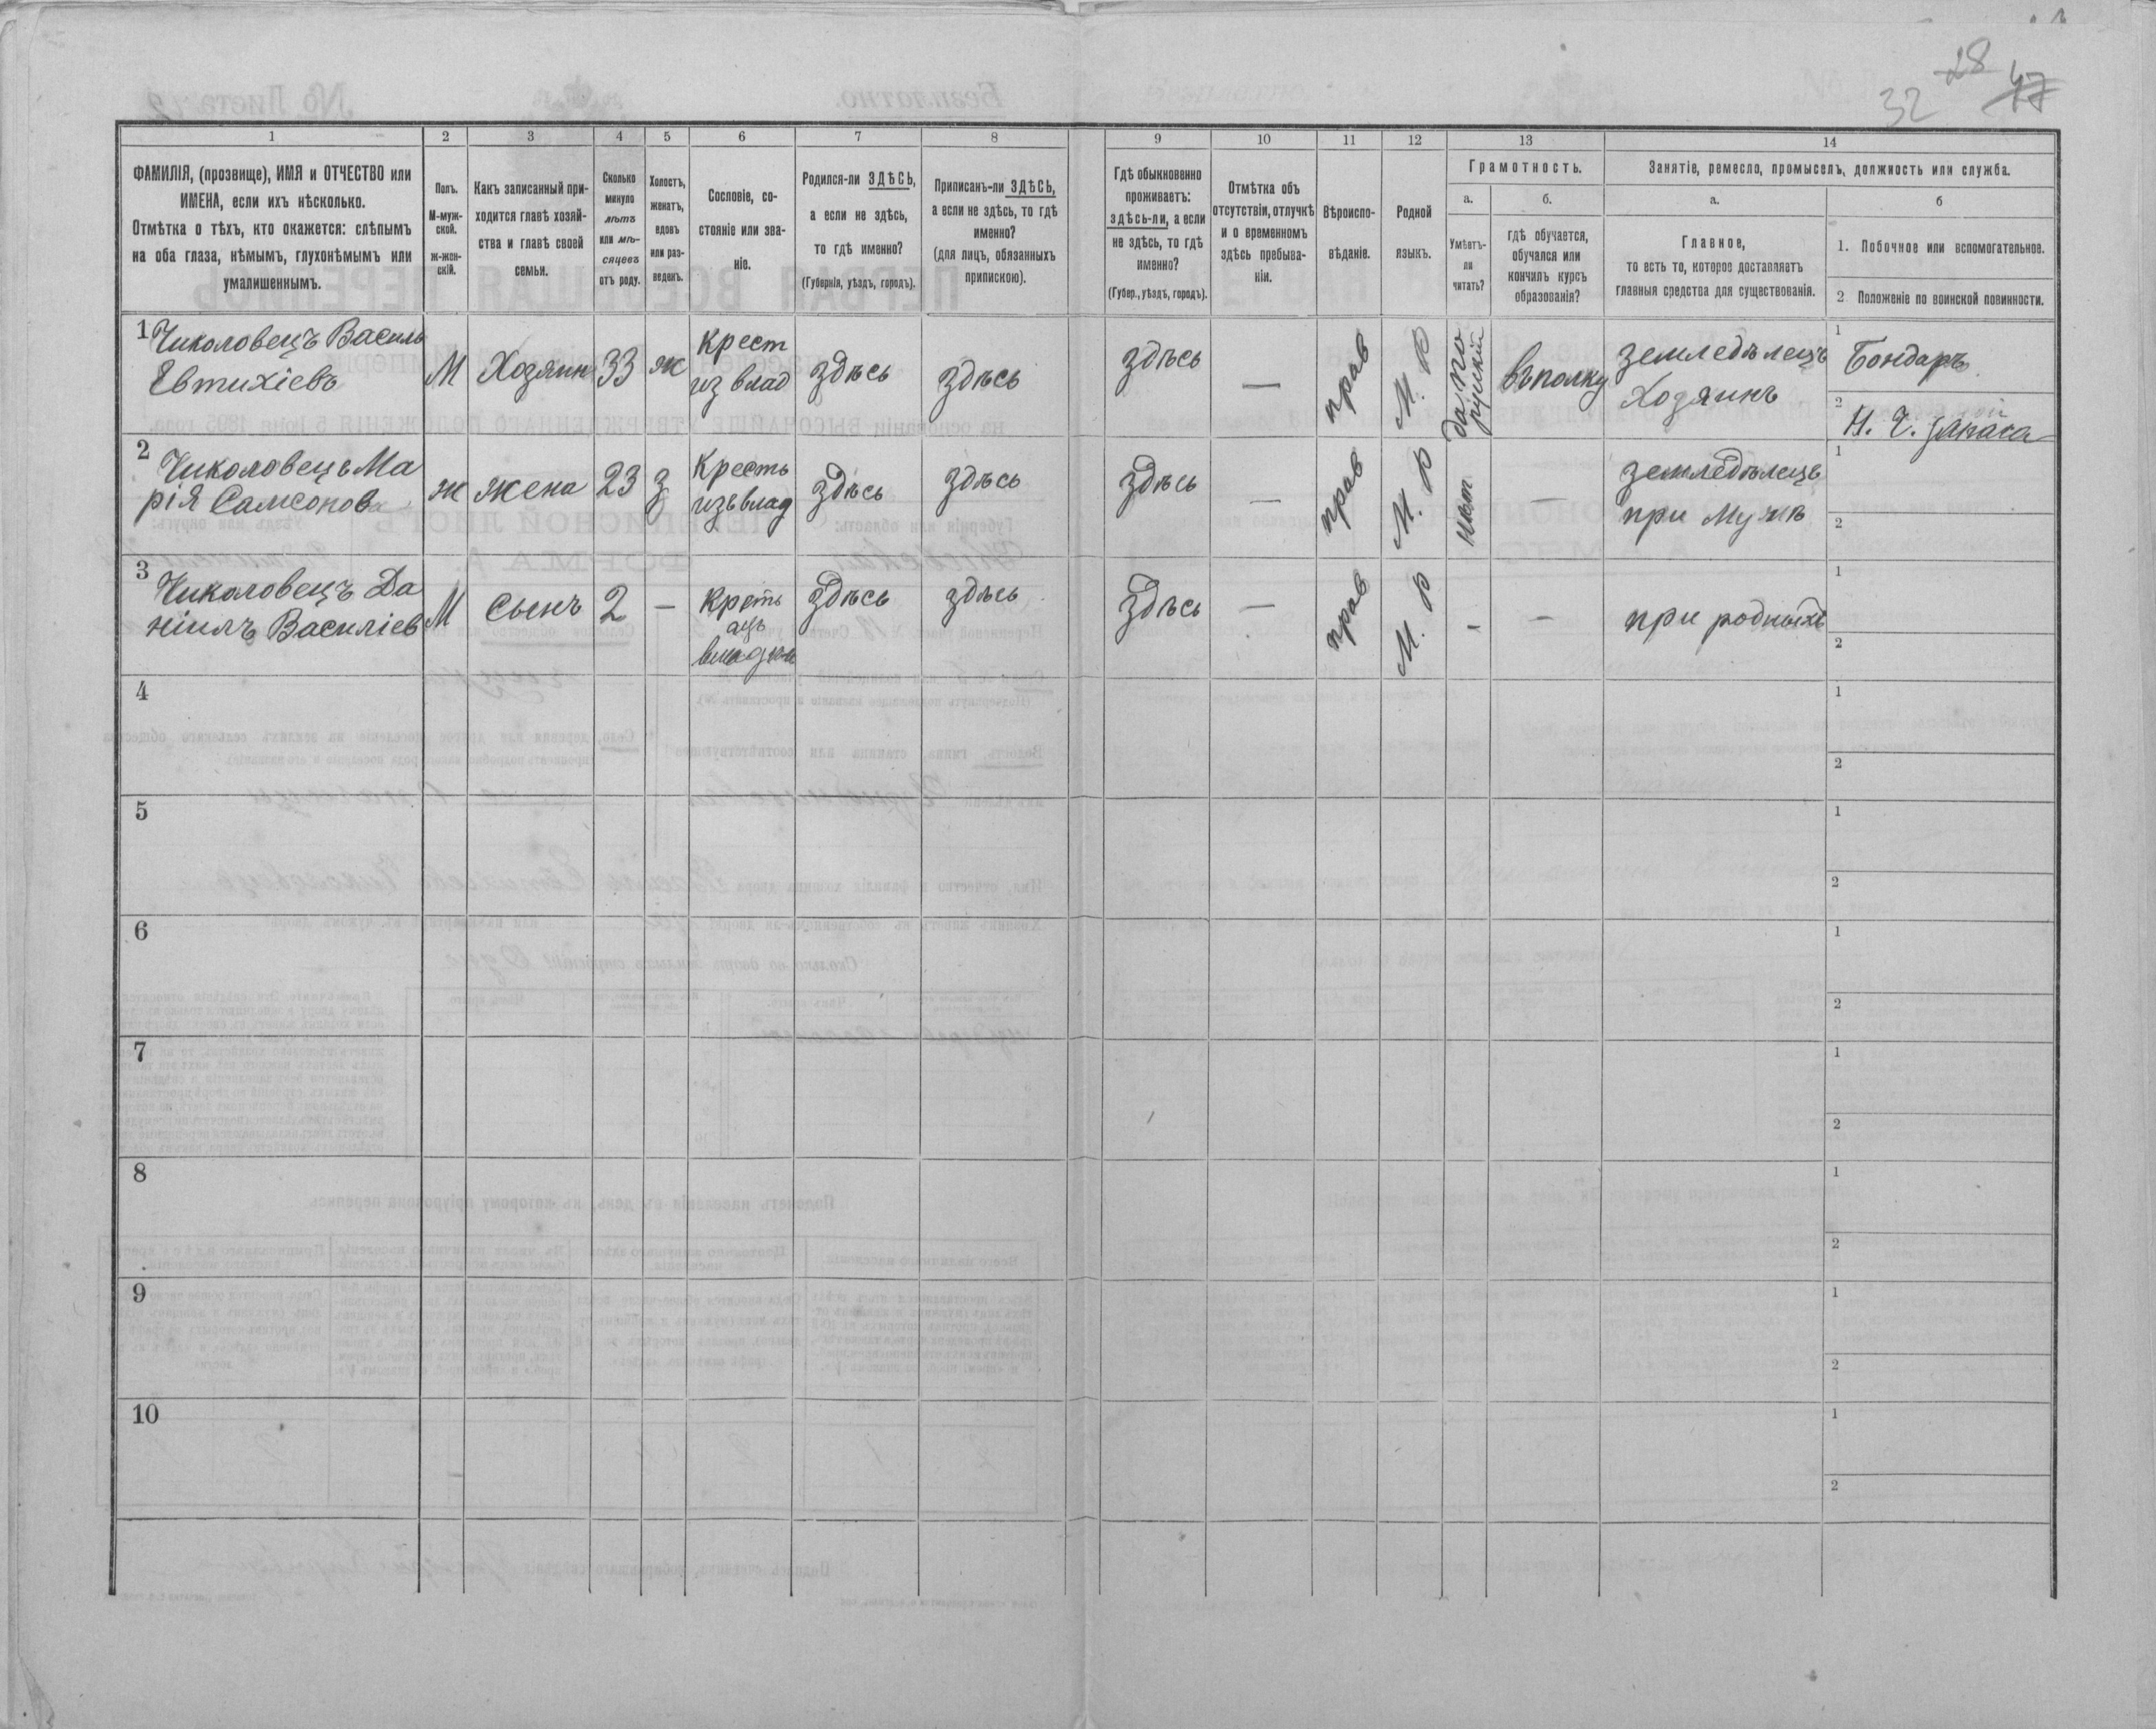 28
32 47
1 2 3 4 5 6 7 8 9 10 11 12 13 14
ФАМИЛІЯ, (прозвище), ИМЯ и ОТЧЕСТВО или
ИМЕНА, если ихъ нѣсколько.
Отмѣтка о тѣхъ, кто окажется: слѣпымъ
на оба глаза, нѣмымъ, глухонѣмымъ или
умалишеннымъ.
Полъ.
М-муж-
ской.
ж-жен-
скій.
Какъ записанный при-
ходится главѣ хозяй-
ства и главѣ своей
семьи.
Сколько
минуло
лѣтъ
или мѣ-
сяцевъ
отъ роду.
Холостъ,
женатъ,
вдовъ
или раз-
веденъ.
Сословіе, со-
стояніе или зва-
ніе.
Родился-ли ЗДѢСЬ,
а если не здѣсь,
то гдѣ именно?
(Губернія, уѣздъ, городъ).
Приписанъ-ли ЗДѢСЬ,
а если не здѣсь, то гдѣ
именно?
(для лицъ, обязанныхъ
припискою).
Гдѣ обыкновенно
проживаетъ:
здѣсь-ли, а если
не здѣсь, то гдѣ
именно?
(Губер., уѣздъ, городъ).
Отмѣтка объ
отсутствіи, отлучкѣ
и о временномъ
здѣсь пребыва-
ніи.
Вѣроиспо-
вѣданіе.
Родной
языкъ.
Грамотность.
а.
Умѣетъ-
ли
читать?
б.
гдѣ обучается,
обучался или
кончилъ курсъ
образованія?
Занятіе, ремесло, промыселъ, должность или служба.
а.
Главное,
то есть то, которое доставляетъ
главныя средства для существованія.
б
1. Побочное или вспомогательное.
2 Положеніе по воинской повинности.
1 Чиколовецъ Василь
Евтихіевъ
М Хозяин 33 ж
Крест
из влад
здѣсь здѣсь здѣсь — прав М. р
да, по
русскій
въ полку
земледѣлецъ
Хозяинъ
1 Бондаръ
2 Н. Ч. запаса
2 Чиколовецъ Ма
рія Самсонова
ж жена 23 з
Кресть
изъ влад
здѣсь здѣсь здѣсь — прав М. р нѣт —
земледѣлецъ
при Мужѣ
1
2
3 Чиколовецъ Да
ніилъ Василіев
М сынъ 2 —
здѣсь здѣсь здѣсь — прав М. р - —
при родныхъ
1
2
4
1
2
5
1
2
6
1
2
7
1
2
8
1
2
9
1
2
10
1
2